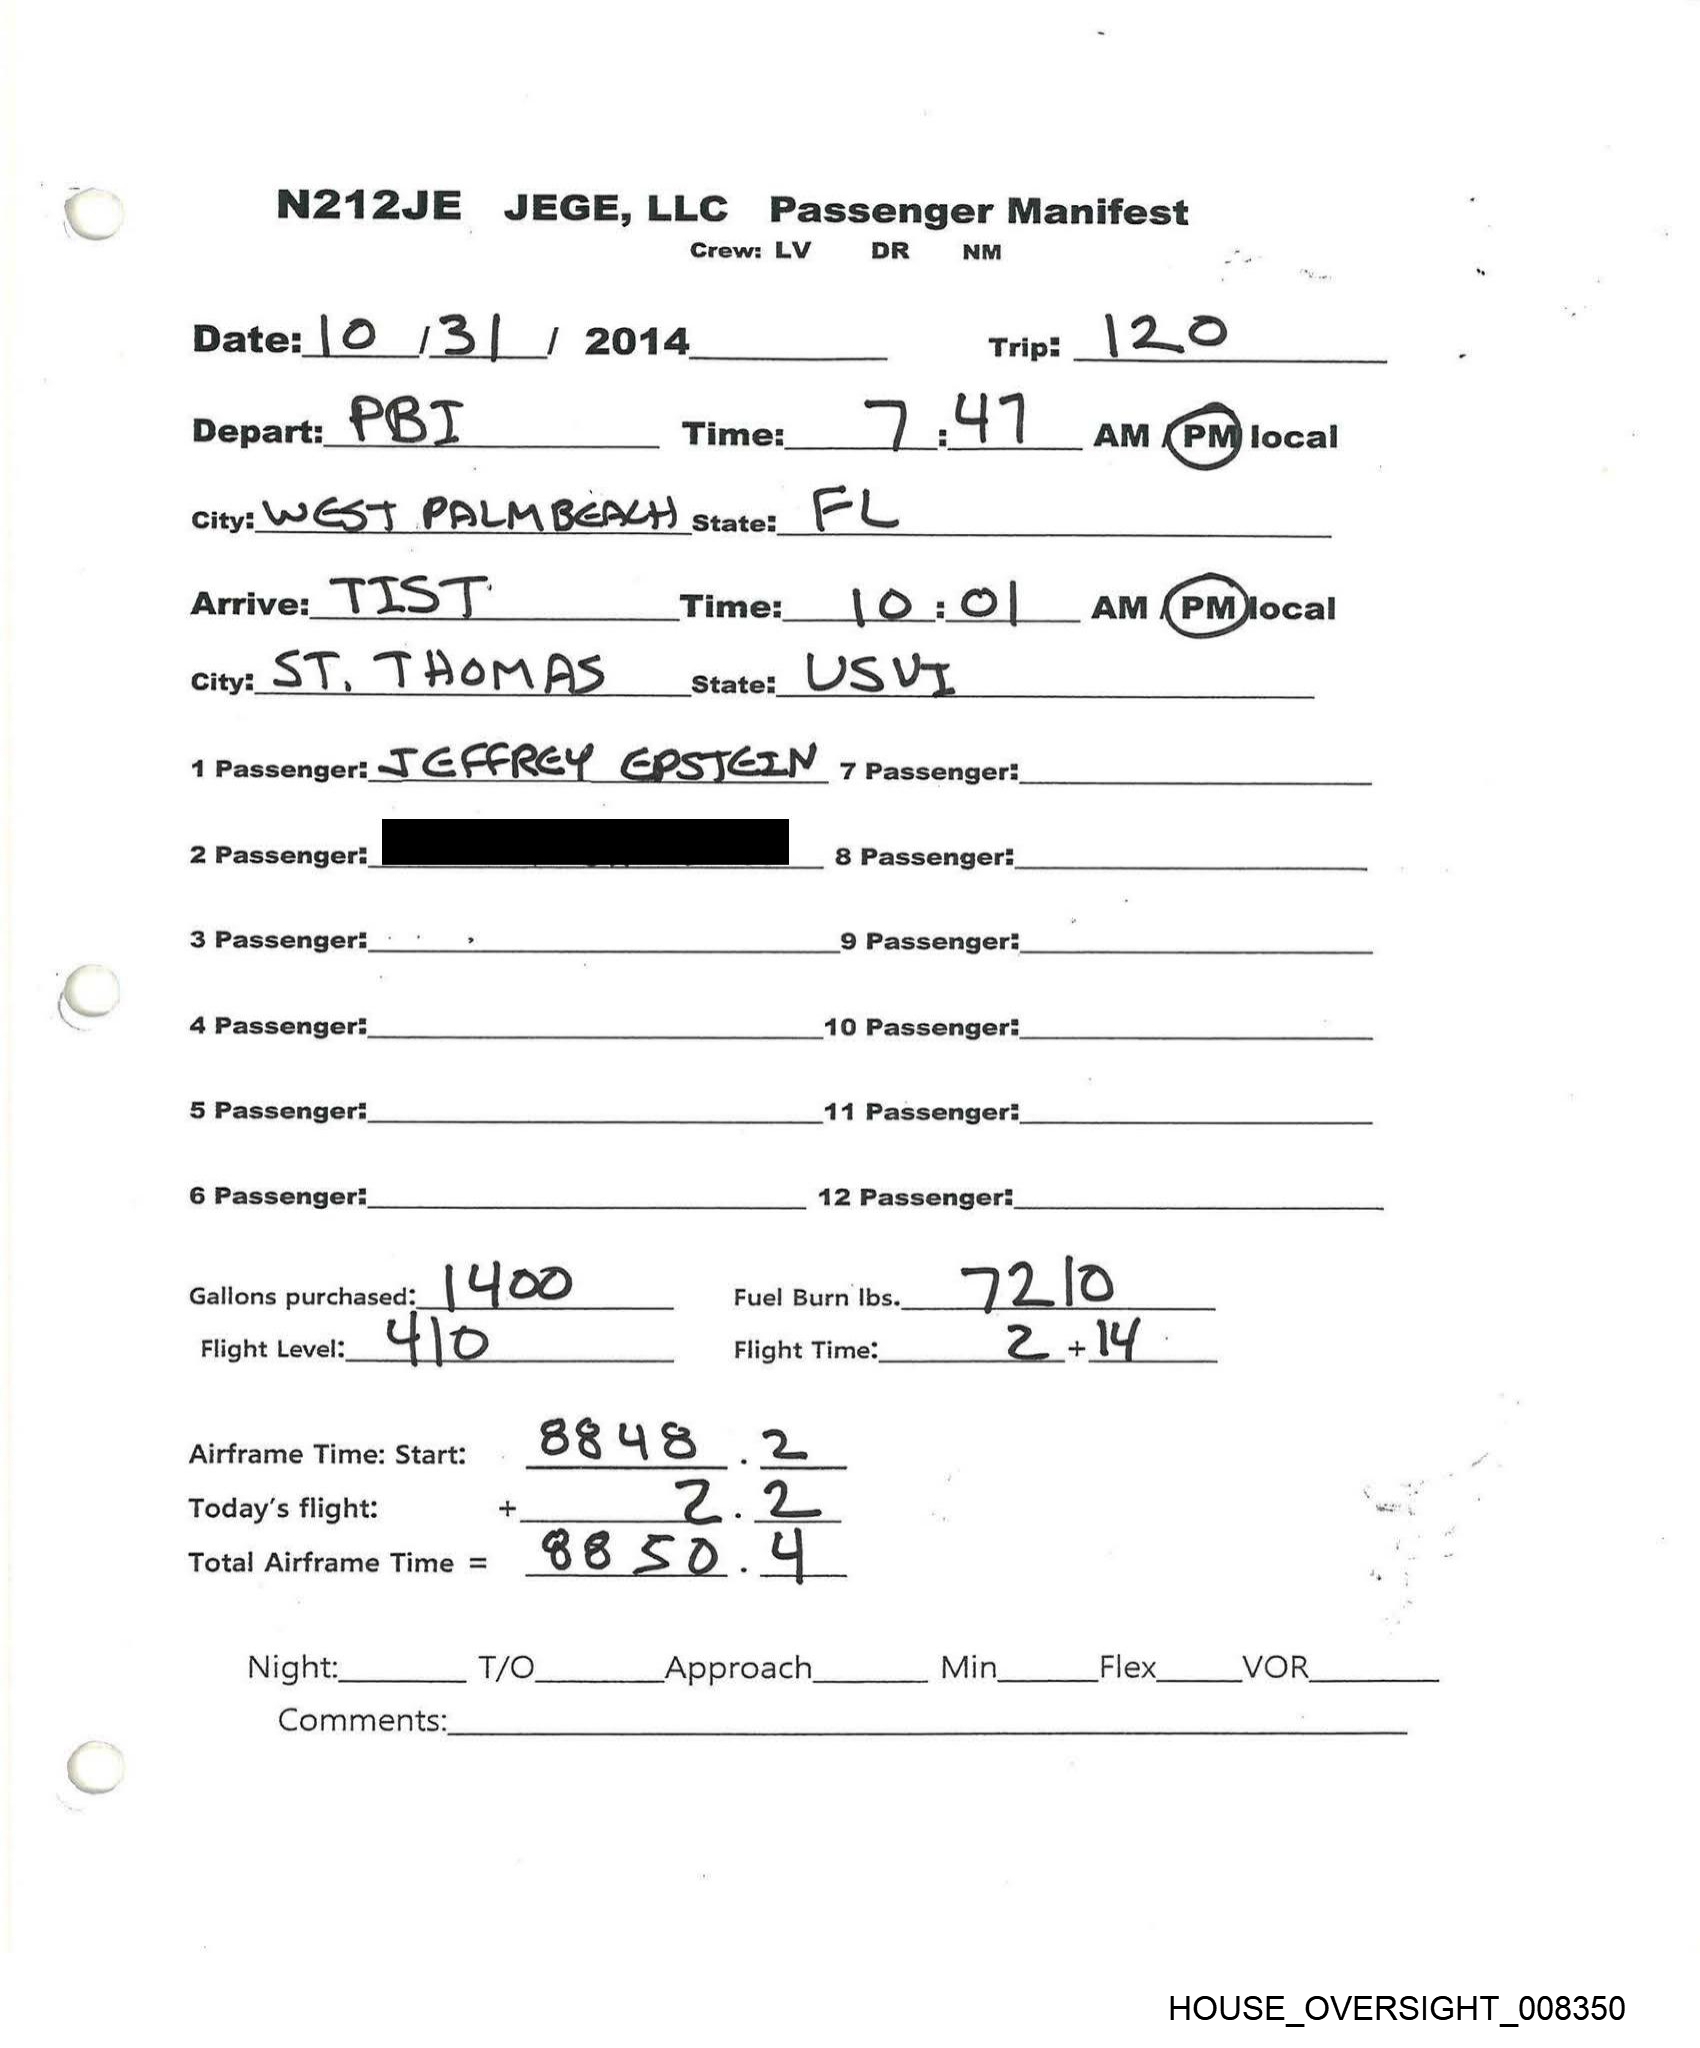 N212JE JEGE, LLC Passenger Manifest
Crew: LV DR NM
Date: 10 / 31 / 2014 Trip: 120
Depart: PBI Time: 7 : 47 AM / PM local
City: WEST PALM BEACH State: FL
Arrive: TIST Time: 10 : 01 AM / PM local
City: ST. THOMAS State: USVI
1 Passenger: JEFFREY EPSTEIN 7 Passenger:
2 Passenger: 8 Passenger:
3 Passenger: 9 Passenger:
4 Passenger: 10 Passenger:
5 Passenger: 11 Passenger:
6 Passenger: 12 Passenger:
Gallons purchased: 1400 Fuel Burn lbs. 7210
Flight Level: 410 Flight Time: 2 + 14
Airframe Time: Start: 8848 . 2
Today's flight: + 2 . 2
Total Airframe Time = 8850 . 4
Night: T/O Approach Min Flex VOR
Comments:
HOUSE_OVERSIGHT_008350